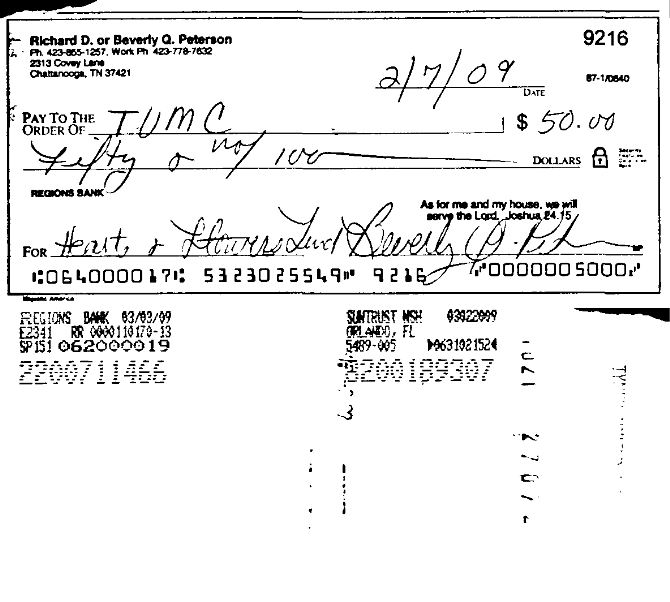 Richard D. or Beverly Q. Peterson
Ph. 423-855-1257, Work Ph 423-778-7632
2313 Covey Lane
Chattanooga, TN 37421
9216
2/7/09
DATE
87-1/0640
PAY TO THE ORDER OF TUMC $ 50.00
Fifty & no/100 DOLLARS
REGIONS BANK
As for me and my house, we will
serve the Lord, Joshua 24.15
FOR Heart & Flowers Fund Beverly Q. Peterson
⑆064000017⑆ 5323025549⑈ 9216 ⑈0000005000⑈
REGIONS BANK 03/03/09
E2341 RR 0000110170-13
SP151 062000019
2200711466
SUNTRUST NSH 03022009
ORLANDO, FL
5489-005 063102152
8200189307